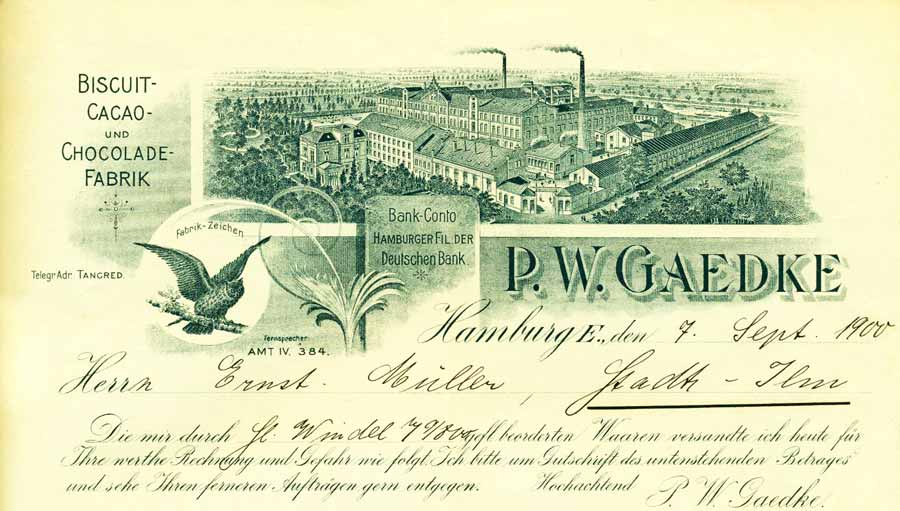 BISCUIT-
CACAO-
UND
CHOCOLADE-
FABRIK
Fabrik-Zeichen
Telegr.Adr. TANCRED.
Fernsprecher:
AMT IV. 384.
Bank-Conto
HAMBURGER FIL. DER
Deutschen Bank.
P. W. GAEDKE
Hamburg E., den 7. Sept. 1900
Herrn Ernst. Müller, Stadt-Ilm
Die mir durch Windel gefl. beorderten Waaren versandte ich heute für
Ihre werthe Rechnung und Gefahr wie folgt. Ich bitte um Gutschrift des untenstehenden Betrages
und sehe Ihren ferneren Aufträgen gern entgegen. Hochachtend P. W. Gaedke.